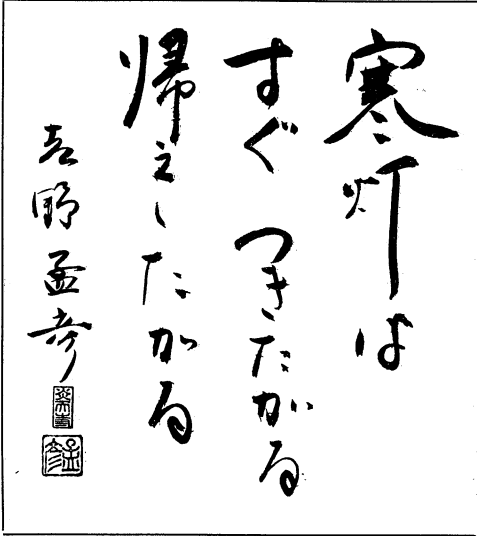 寒灯は
すぐつきたがる
帰えしたがる
吉野孟彦
孟彦